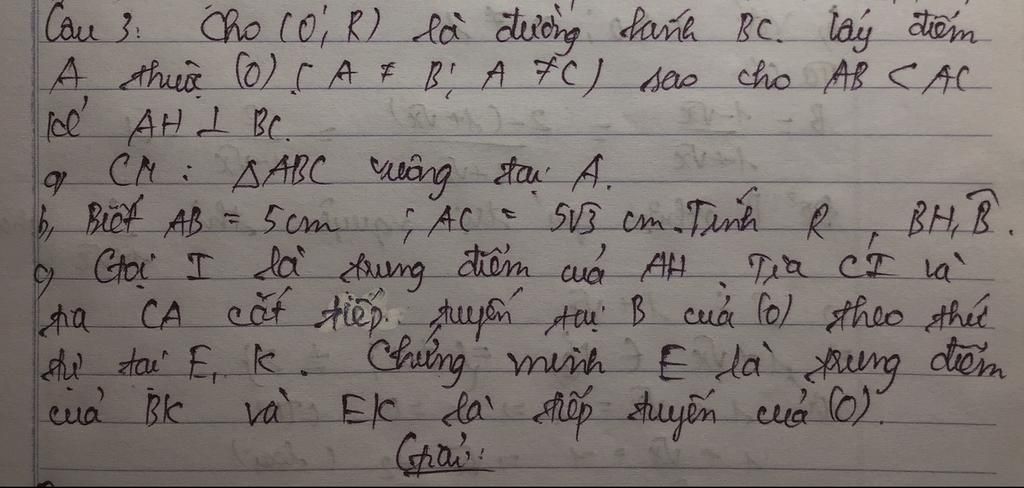 Câu 3: Cho (O; R) là đường kính BC. lấy điểm
A thuộc (O) ( A ≠ B; A ≠ C) sao cho AB < AC
kẻ AH ⊥ BC.
a, CM: ΔABC vuông tại A.
b, Biết AB = 5cm ; AC = 5√3 cm. Tính R, BH, B̂.
c, Gọi I là trung điểm của AH. Tia CI và
tia CA cắt tiếp tuyến tại B của (O) theo thứ
tự tại E, K. Chứng minh E là trung điểm
của BK và EK là tiếp tuyến của (O).
Giải: